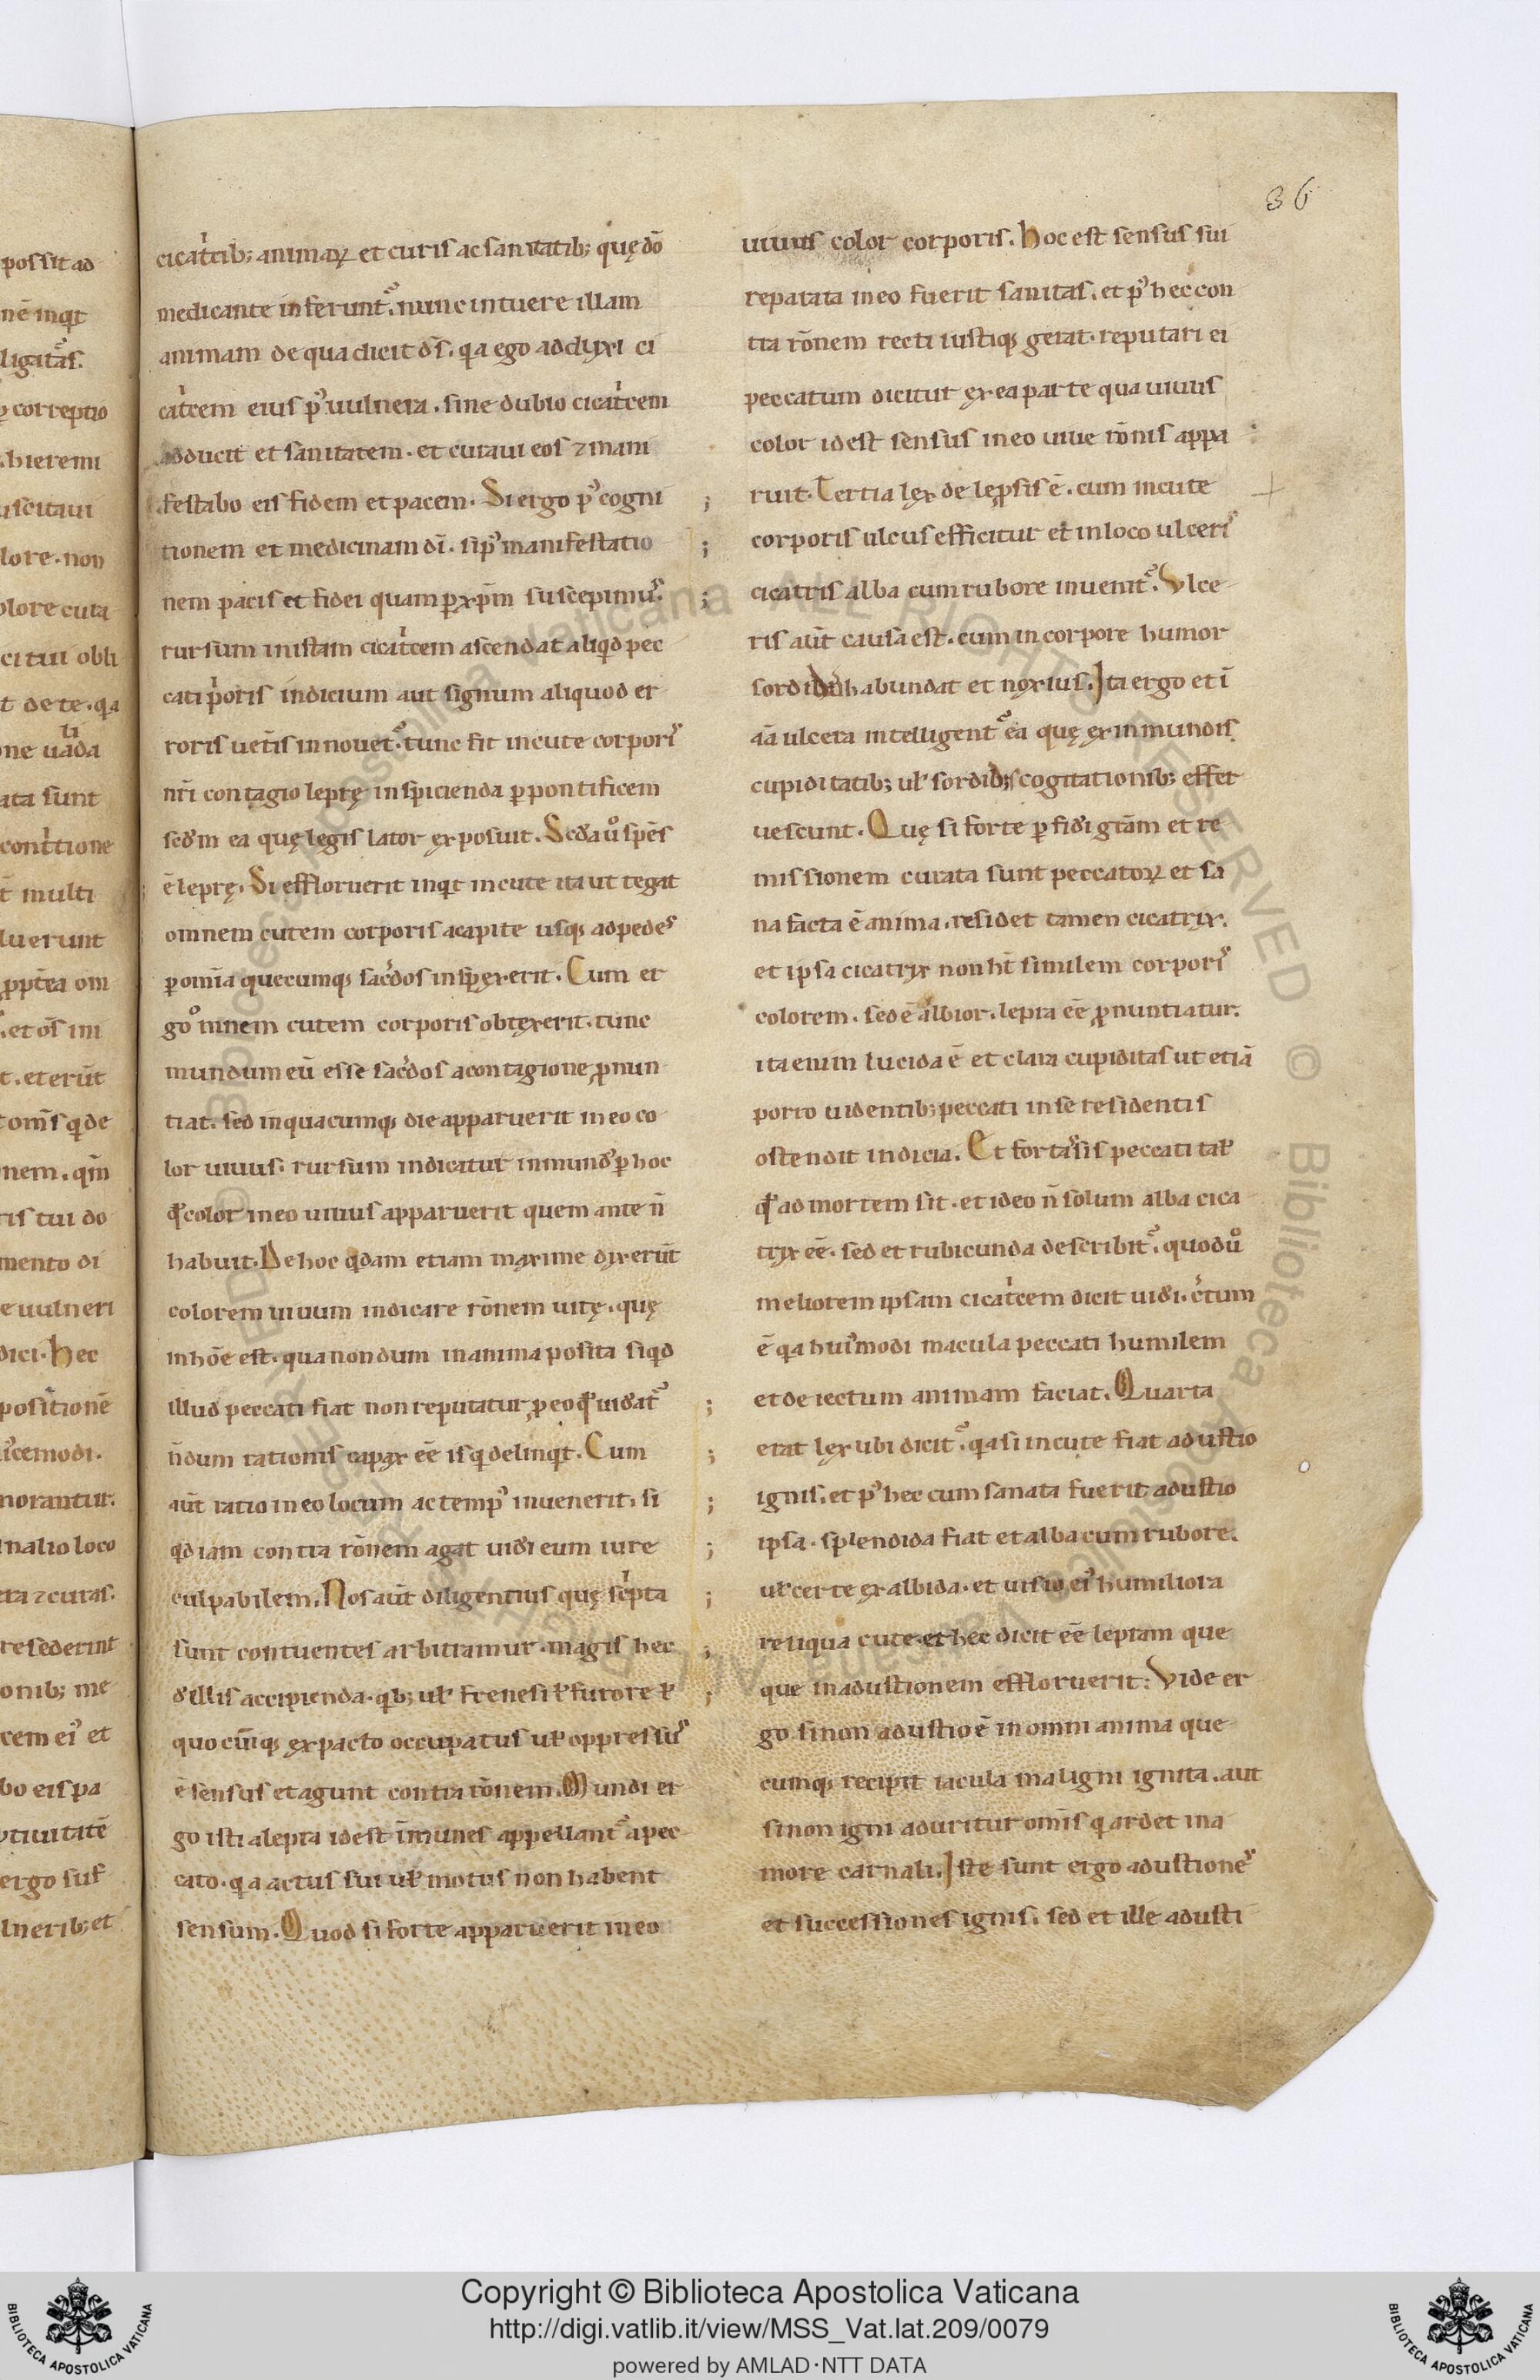 36
possit ad
nē inqt
ligatas.
correptio
hieremi
uscitaui
lore. non
olore cura
ci tui obli
t de te. qa
li
one uada
ata sunt
cont̓tione
t̄ multi
luerunt
ꝓpt̄ea om
. et oš mi
t. et erūt
omīs qde
nem. qm̄
ris tui do
mento di
e uulneri
dici. hec
positionē
icemodi.
norantur.
nalio loco
era ⁊ curas.
resederint
onib; me
cem ei᾿ et
bo eis pa
ptiuitatē
ergo suf
lnerib; et
cicat̓cib; animaꝝ et curis ac sanitatib; quę dō
medicante inferunt᾿. nunc intuere illam
animam de qua dicit dš. qa ego adduxi ci
cat̓cem eius p᾿ uulnera. sine dubio cicat̓cem
adducit et sanitatem. et curaui eos ⁊ mani
festabo eis fidem et pacem. Si ergo p᾿ cogni
tionem et medicinam dī. si p᾿ manifestatio
nem pacis et fidei quam ꝑ xp̄m suscepimu᾿.
rursum in istam cicat̓cem ascendat aliqd pec
cati p̓oris indicium aut signum aliquod er
roris uet̄is innouet᾿. tunc fit in cute corpori᾿
nr̄i contagio leprę inspicienda ꝑ pontificem
scdm ea quę legis lator exposuit. Scda uº spēs
ē leprę. Si effloruerit inqt in cute ita ut tegat
omnem cutem corporis a capite usq; ad pedes
ꝑ omīa quecumq; sac̓dos inspexerit. Cum er
gº mnem cutem corporis obtexerit. tunc
mundum eū esse sac̓dos a contagione ꝓnun
tiat. sed in quacumq; die apparuerit in eo co
lor uiuus. rursum indicatur inmund᾿ ꝑ hoc
qđ color in eo uiuus apparuerit quem ante n̄
habuit. De hoc qdam etiam maxime dixerūt
colorem uiuum indicare rōnem uitę. quę
in hōe est. qua nondum in anima posita siqd
illud peccati fiat non reputatur, ꝓ eo qđ uideat᾿
n̄dum rationis capax eē is q delinqt. Cum
aūt ratio in eo locum ac temp᾿ inuenerit. si
qd iam contra rōnem agat uidi eum iure
culpabilem. Nos aūt diligentius quę sc̓pta
sunt contuentes arbitramur. magis hec
d᾿ illis accipienda. qb; uł frenesi ł furore ł
quocūq; ex pacto occupatus uł oppressu᾿
ē sensus et agunt contra rōnem. Mundi er
go isti a lepra idest īmunes appellant᾿ a pec
cato. qa actus sui uł motus non habent
sensum. Quod si forte apparuerit in eo
uiuus color corporis. hoc est sensus sui
reparata in eo fuerit sanitas. et p᾿ hec con
tra rōnem recti iustiq; gerat. reputari ei
peccatum dicitur ex ea parte qua uiuus
color idest sensus in eo uiue rōnis appa
ruit. Tertia lex de lepsis ē. cum in cute
corporis ulcus efficitur et in loco ulceri᾿
cicatris alba cum rubore inuenit᾿. Vlce
ris aūt causa est. cum in corpore humor
sordidus habundat et noxius. Ita ergo et ī
aīa ulcera intelligent᾿ ea quę ex inmundis
cupiditatib; uł sordidis cogitationib; effer
uescunt. Quę si forte ꝑ fidi grām et re
missionem curata sunt peccatoꝝ et sa
na facta ē anima. residet tamen cicatrix.
et ipsa cicatrix non ht̄ similem corpori᾿
colorem. sed ē albior. lepra eē ꝓnuntiatur.
ita enim lucida ē et clara cupiditas ut etiā
porro uidentib; peccati in se residentis
ostendit indicia. Et fortassis peccati tał
qđ ad mortem sit. et ideo n̄ solum alba cica
trix eē. sed et rubicunda describit᾿. quod uº
meliorem ipsam cicat̓cem dicit uidi. c̓tum
ē qa hui᾿modi macula peccati humilem
et deiectum animam faciat. Quarta
erat lex ubi dicit᾿. qa si in cute fiat adustio
ignis. et p᾿ hec cum sanata fuerit adustio
ipsa. splendida fiat et alba cum rubore.
uł certe exalbida. et uisio ei᾿ humiliora
reliqua cute. et hec dicit eē lepram que
que in adustionem effloruerit: Vide er
go si non adustio ē in omni anima que
cumq; recipit iacula maligni ignita. aut
si non igni aduritur omīs q ardet in a
more carnali. Iste sunt ergo adustione᾿
et successiones ignis. sed et ille adusti
Copyright © Biblioteca Apostolica Vaticana
http://digi.vatlib.it/view/MSS_Vat.lat.209/0079
powered by AMLAD·NTT DATA
BIBLIOTECA APOSTOLICA VATICANA
BIBLIOTECA APOSTOLICA VATICANA